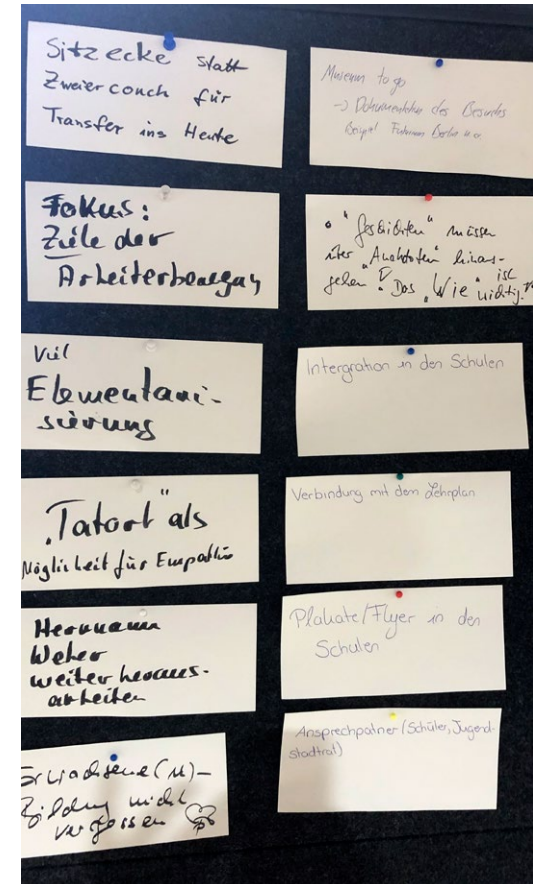 Sitzecke statt
Zweiercouch für
Transfer ins Heute
Fokus:
Ziele der
Arbeiterbewegung
Viel
Elementari-
sierung
„Tatort" als
Möglichkeit für Empathie
Hermann
Weber
weiter heraus-
arbeiten
Erwachsene(n)-
Bildung nicht
vergessen
Museum to go
-> Dokumentation des Besuches
Beispiel Futurium Berlin u.a.
• "Geschichten" müssen
über "Anekdoten" hinaus-
gehen! Das "Wie" ist
wichtig!
Intergration in den Schulen
Verbindung mit dem Lehrplan
Plakate/Flyer in den
Schulen
Ansprechpatner (Schüler, Jugend-
stadtrat)